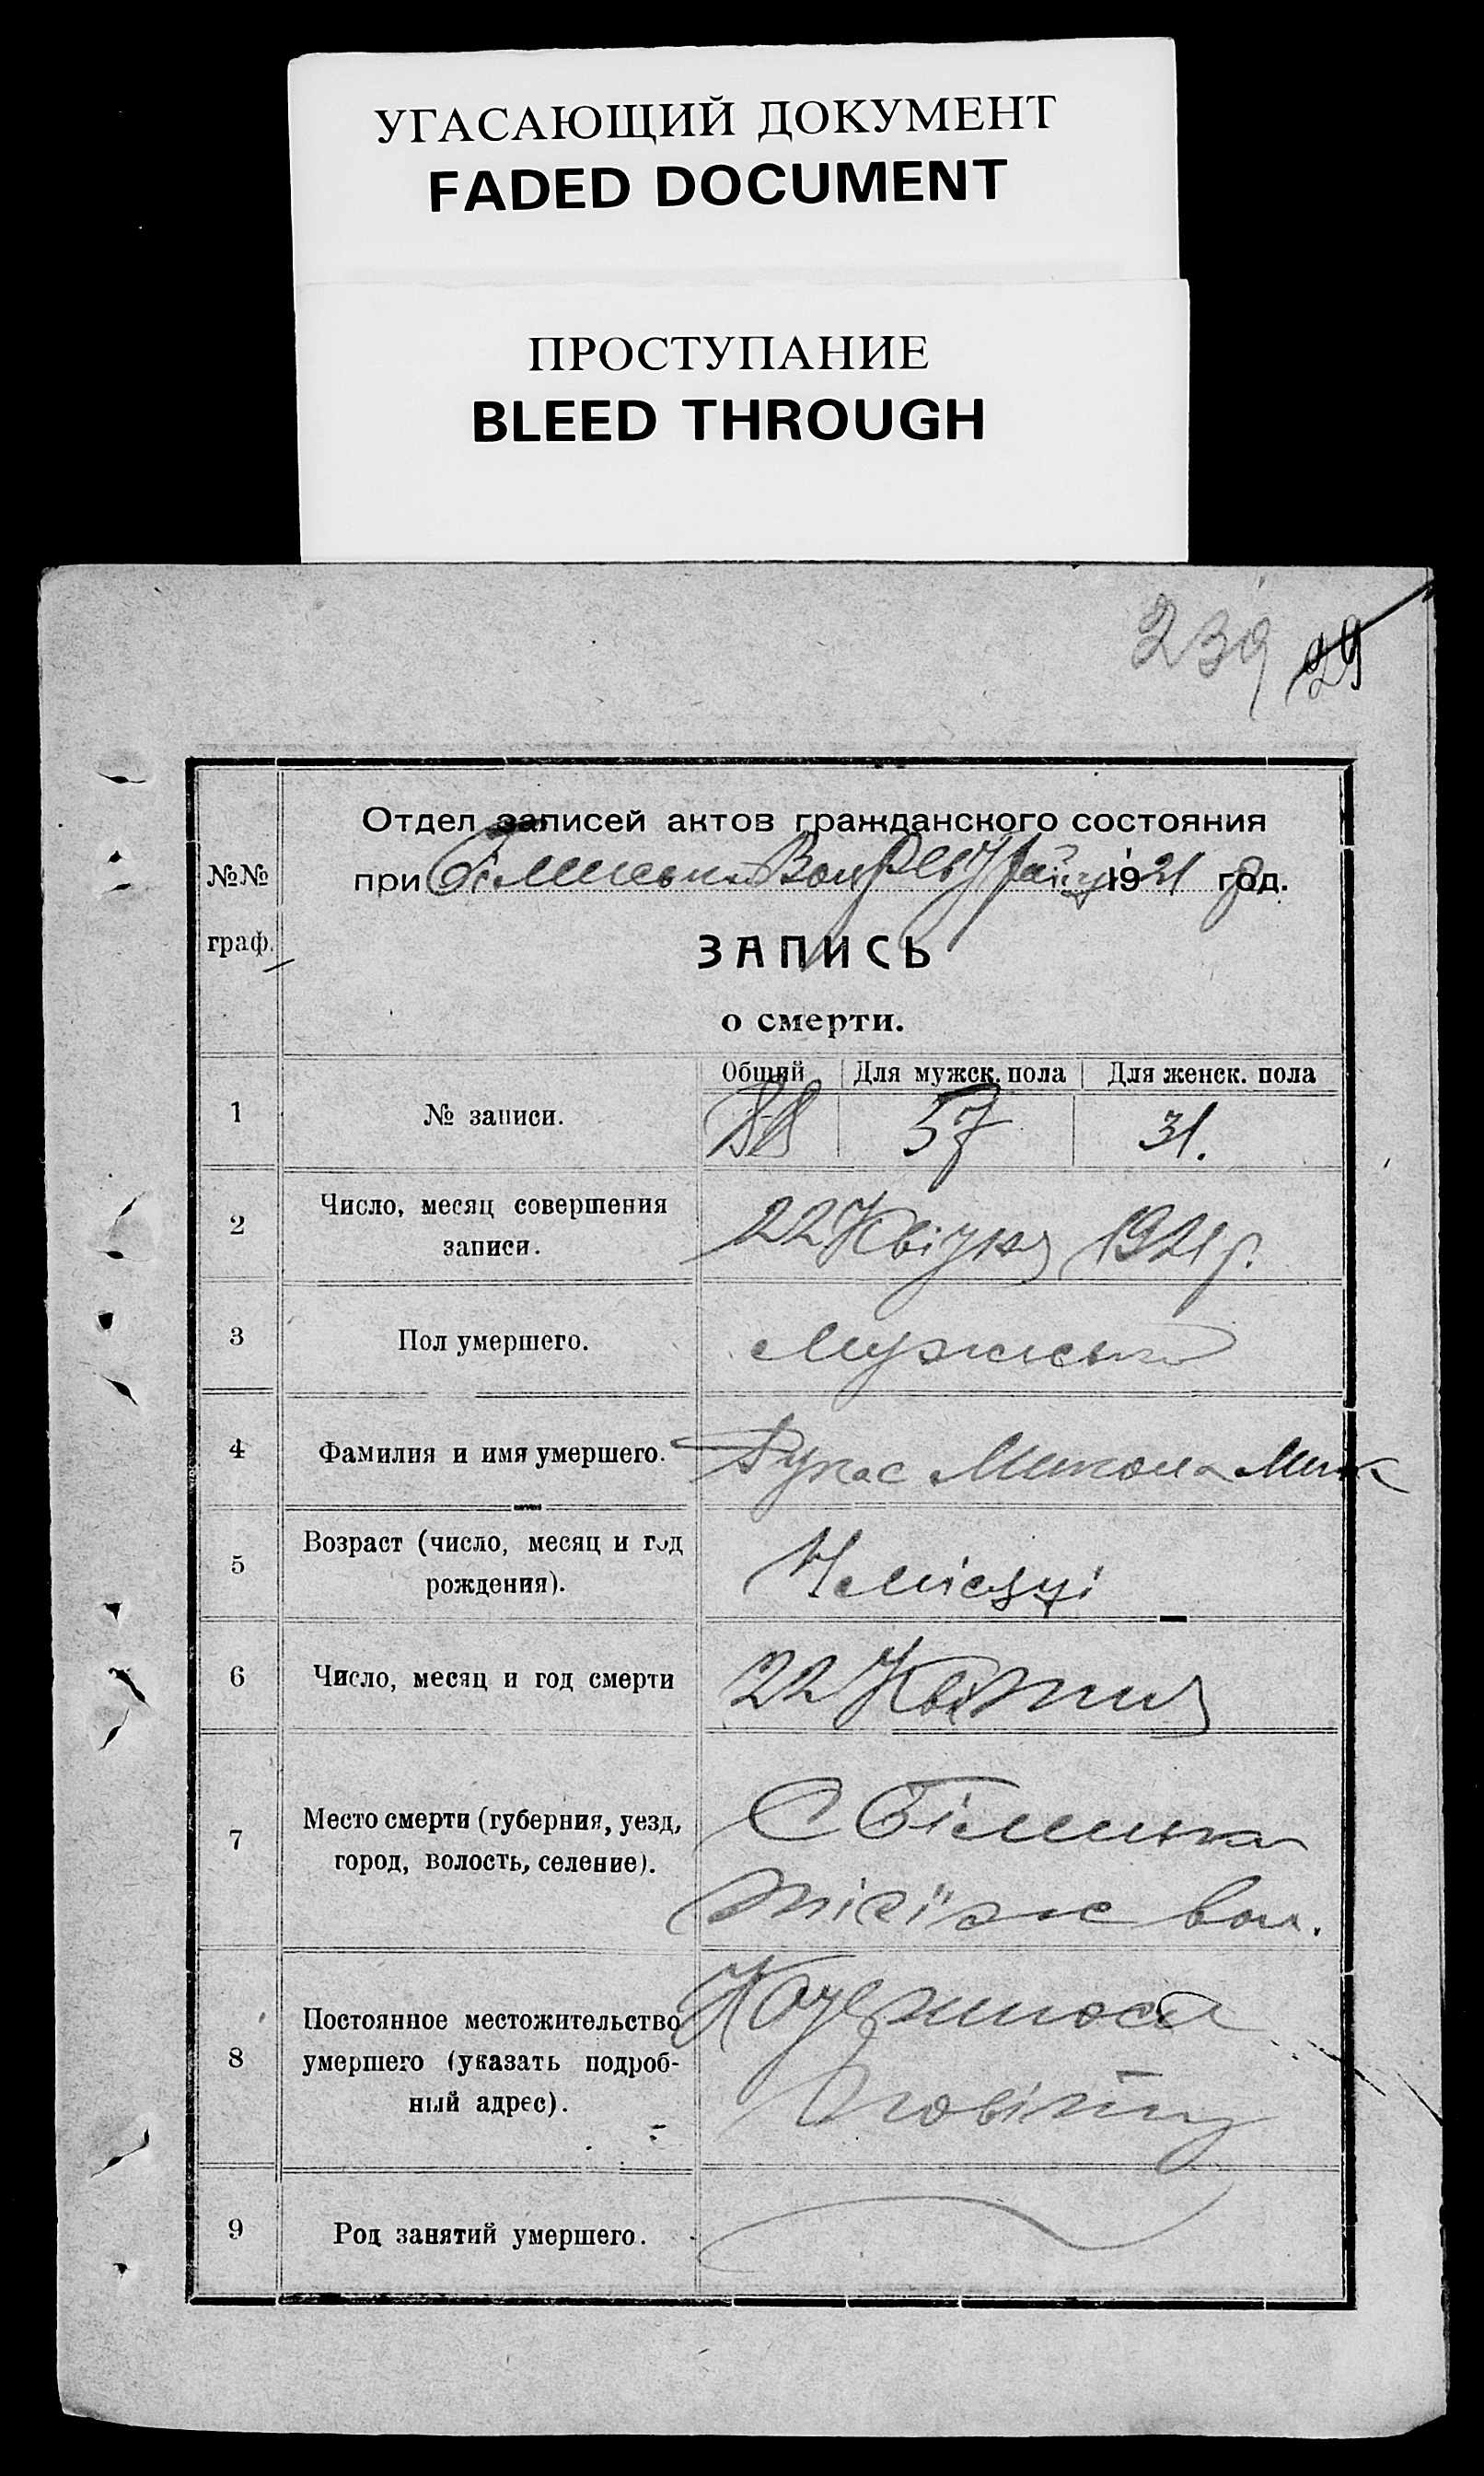 УГАСАЮЩИЙ ДОКУМЕНТ
FADED DOCUMENT
ПРОСТУПАНИЕ
BLEED THROUGH
239 29
Отдел записей актов гражданского состояния
№№ при Вол 1921 год.
граф.
ЗАПИСЬ
о смерти.
Общий Для мужск. пола Для женск. пола
1 № записи. 88 57 31.
2 Число, месяц совершения
записи. 22 Квітня 1921 р.
3 Пол умершего. Мужеська
4 Фамилия и имя умершего. Микола
5 Возраст (число, месяц и год
рождения). місяці
6 Число, месяц и год смерти 22 Квітня
7 Место смерти (губерния, уезд,
город, волость, селение). С
вол.
8 Постоянное местожительство
умершего (указать подроб-
ный адрес). повіту
9 Род занятий умершего.